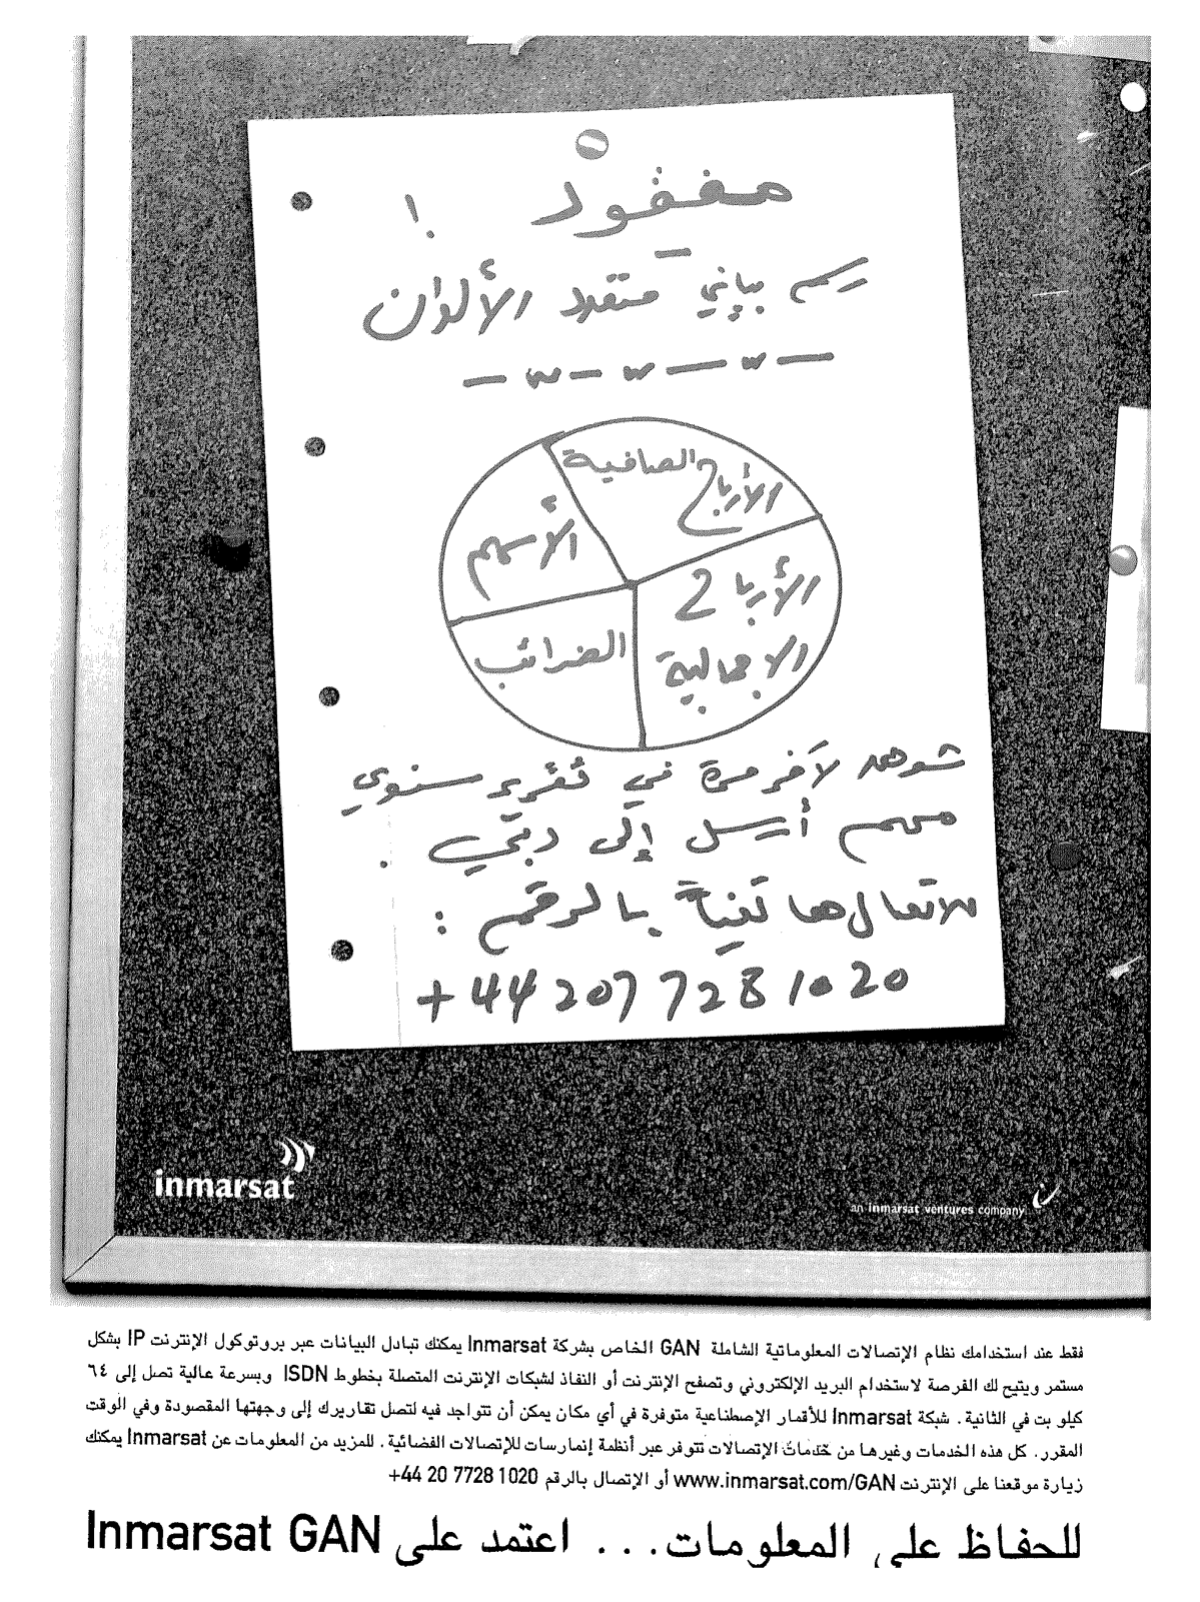 مفقود !
رسم بياني متعدد الألوان
الأرباح الصافية
الأسهم
الأرباح
الاجمالية
الضرائب
شوهد لآخر مرة في تقرير سنوي
مهم أرسل إلى دبي .
بالرقم :
+44 207 7281020
inmarsat
an inmarsat ventures company
فقط عند استخدامك نظام الإتصالات المعلوماتية الشاملة GAN الخاص بشركة Inmarsat يمكنك تبادل البيانات عبر بروتوكول الإنترنت IP بشكل
مستمر ويتيح لك الفرصة لاستخدام البريد الإلكتروني وتصفح الإنترنت أو النفاذ لشبكات الإنترنت المتصلة بخطوط ISDN وبسرعة عالية تصل إلى ٦٤
كيلو بت في الثانية. شبكة Inmarsat للأقمار الإصطناعية متوفرة في أي مكان يمكن أن تتواجد فيه لتصل تقاريرك إلى وجهتها المقصودة وفي الوقت
المقرر. كل هذه الخدمات وغيرها من خدمات الإتصالات تتوفر عبر أنظمة إنمارسات للإتصالات الفضائية. للمزيد من المعلومات عن Inmarsat يمكنك
زيارة موقعنا على الإنترنت www.inmarsat.com/GAN أو الإتصال بالرقم 1020 7728 20 44+
للحفاظ على المعلومات... اعتمد على Inmarsat GAN